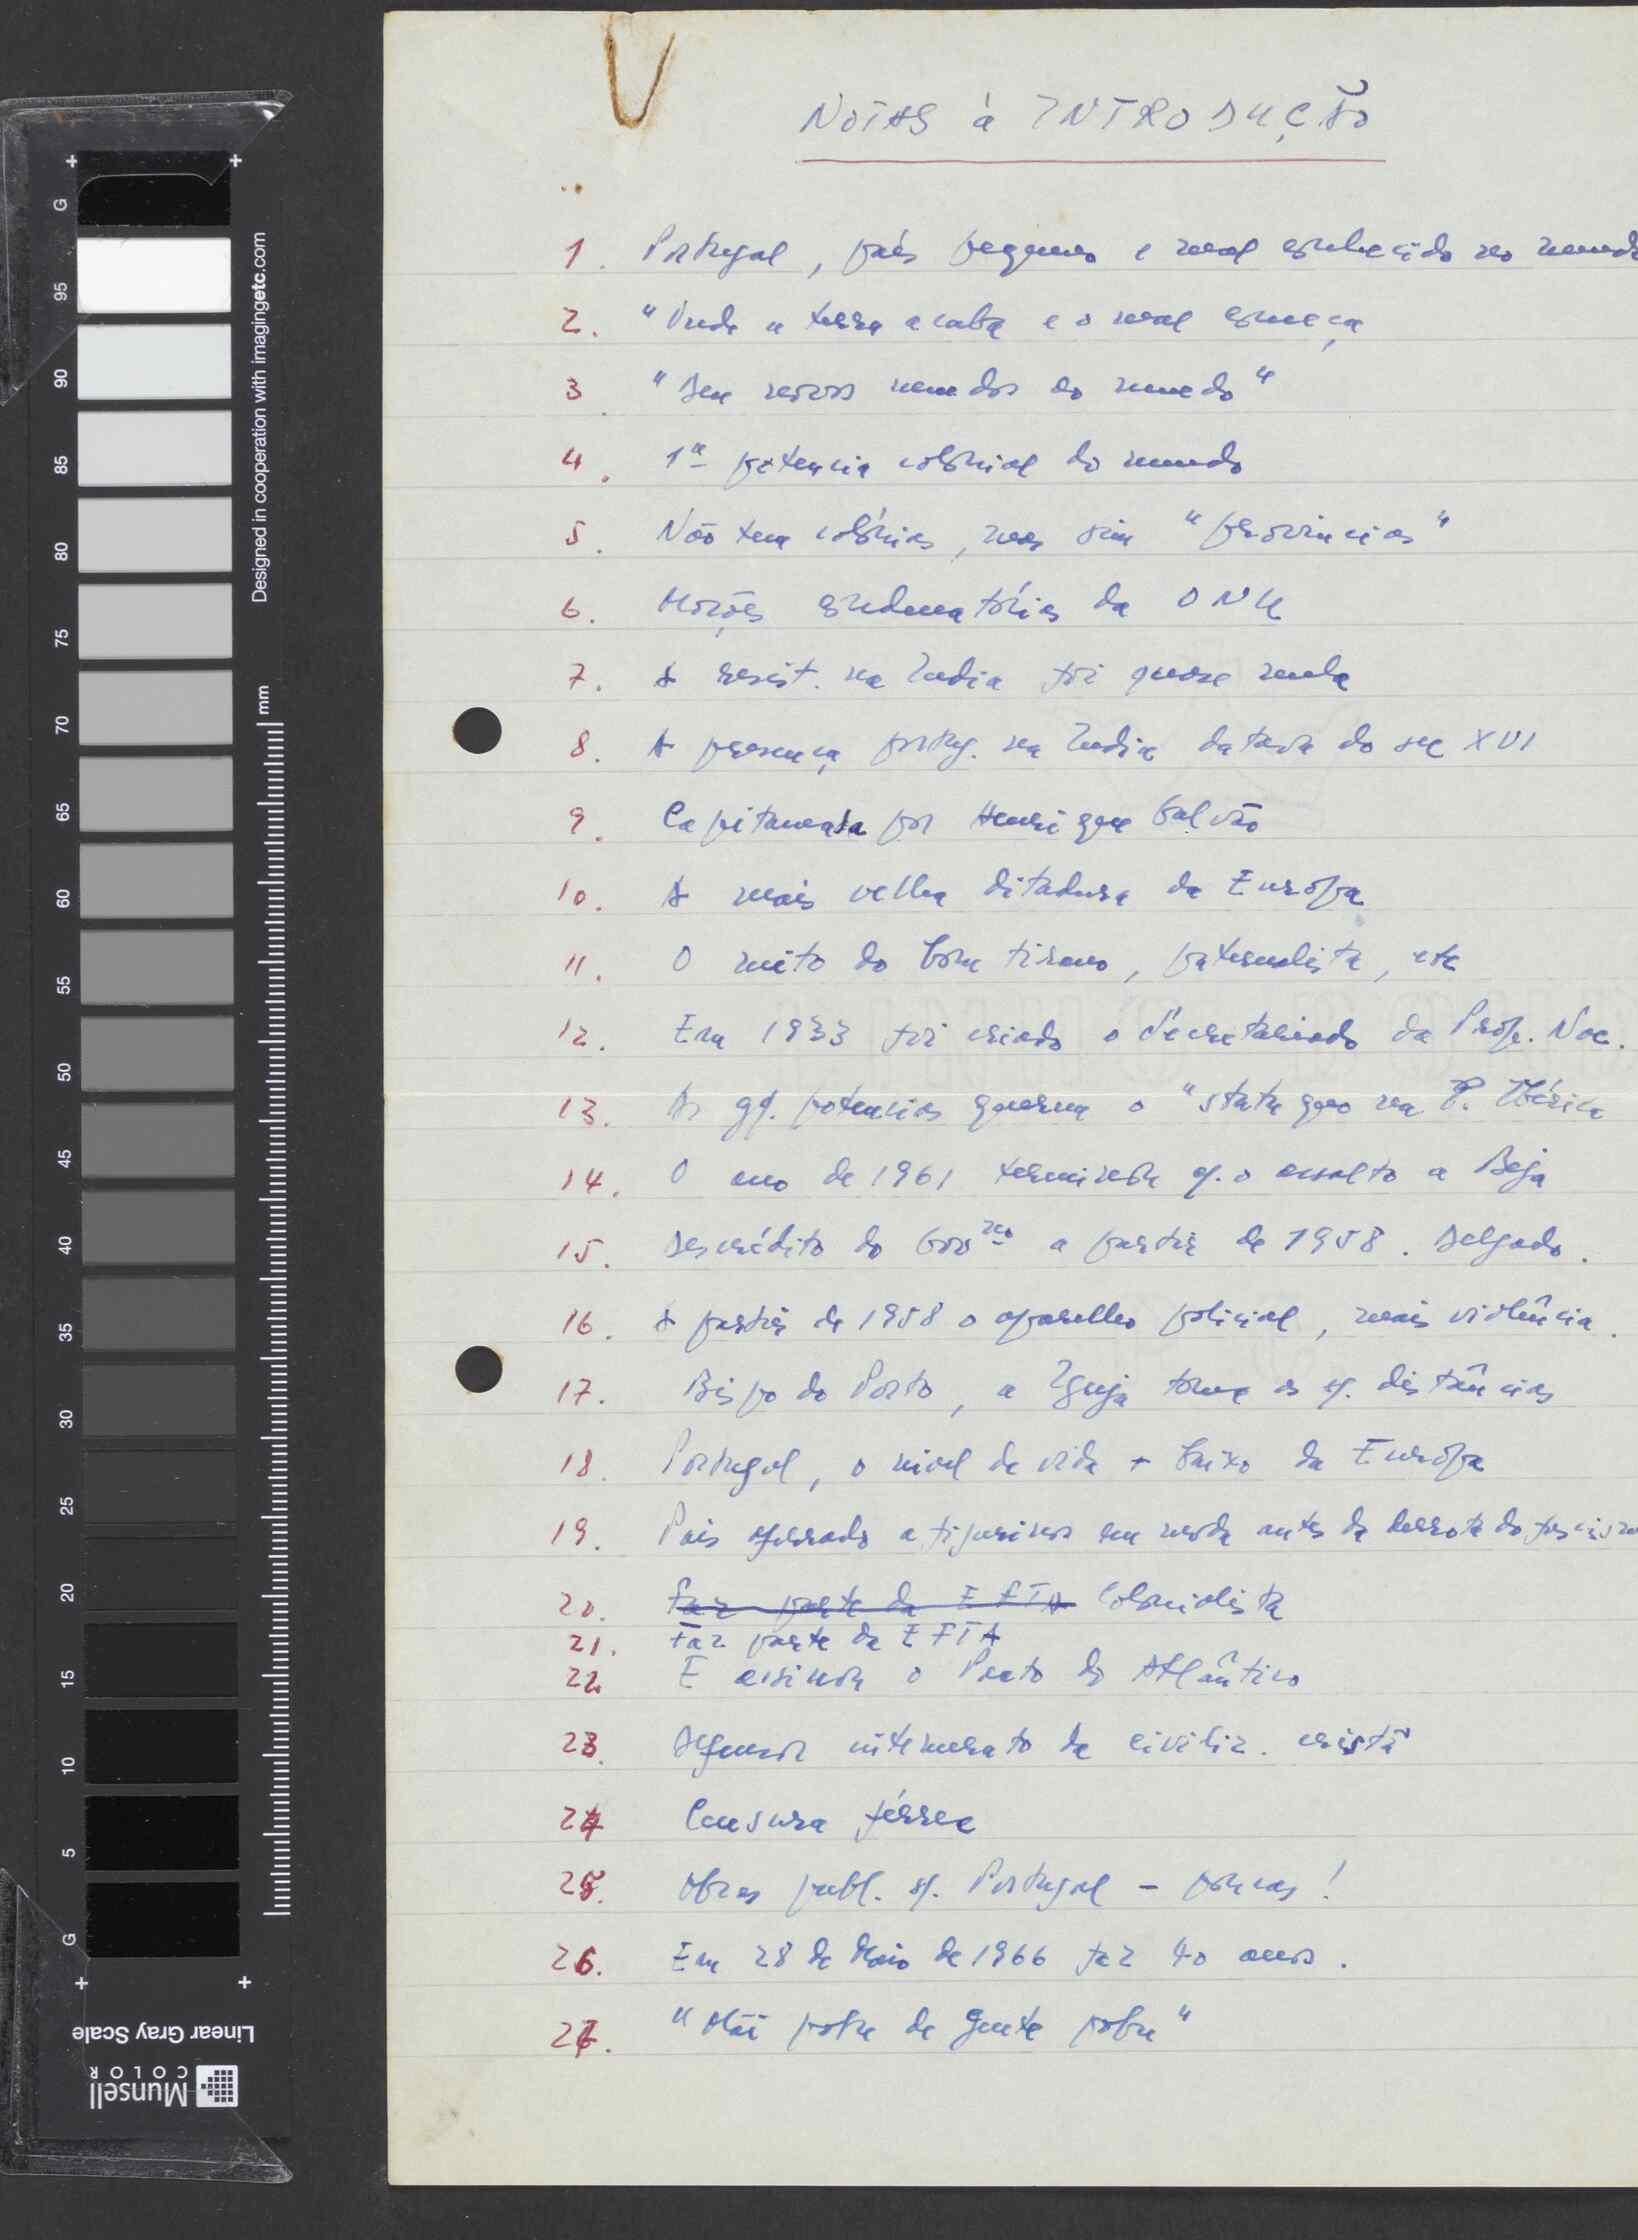 NOTAS à INTRODUÇÃO
1. Portugal, país pequeno e mal conhecido no mundo
2. "Onde a terra acaba e o mar começa
3. "Deu novos mundos ao mundo"
4. 1ª potencia colonial do mundo
5. Não tem colónias, mas sim "provincias"
6. Moções condenatórias da ONU
7. A resist. na India foi quase nula
8. A presença portug. na India datava do sec XVI
9. Capitaneada por Henrique Galvão
10. A mais velha ditadura da Europa
11. O mito do bom tirano, paternalista, etc
12. Em 1933 foi criado o Secretariado da Prop. Nac.
13. As gd. potencias querem o "statu quo na P. Ibérica
14. O ano de 1961 terminou c/. o assalto a Beja
15. Descrédito do Govno a partir de 1958. Delgado.
16. A partir de 1958 o aparelho policial, mais violência.
17. Bispo do Porto, a Igreja toma as s/. distâncias
18. Portugal, o nivel de vida + baixo da Europa
19. Pais aferrado a figurinos em moda antes da derrota do fascismo
20. Faz parte da EFTA Colonialista
21. Faz parte da EFTA
22. E assinou o Pacto do Atlântico
23. Defensor intemerato da civiliz. cristã
24 Censura férrea
25. Obras publ. s/. Portugal - poucas!
26. Em 28 de Maio de 1966 faz 40 anos.
27. "Mãi pobre de gente pobre"
Designed in cooperation with imagingetc.com
mm
G 95 90 85 80 75 70 65 60 55 50 45 40 35 30 25 20 15 10 5 G
Linear Gray Scale
Munsell
COLOR